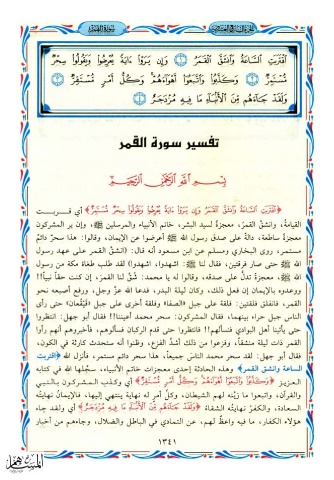 سورة القمر
اقْتَرَبَتِ السَّاعَةُ وَانشَقَّ الْقَمَرُ ١ وَإِن يَرَوْا ءَايَةً يُعْرِضُوا وَيَقُولُوا سِحْرٌ
مُّسْتَمِرٌّ ٢ وَكَذَّبُوا وَاتَّبَعُوا أَهْوَاءَهُمْ وَكُلُّ أَمْرٍ مُّسْتَقِرٌّ ٣
وَلَقَدْ جَاءَهُم مِّنَ الْأَنبَاءِ مَا فِيهِ مُزْدَجَرٌ ٤
تفسير سورة القمر
بسم الله الرحمن الرحيم
﴿اقْتَرَبَتِ السَّاعَةُ وَانشَقَّ الْقَمَرُ وَإِن يَرَوْا ءَايَةً يُعْرِضُوا وَيَقُولُوا سِحْرٌ مُّسْتَمِرٌّ﴾ أي قربت
القيامةُ، وانشقَّ القمرُ، معجزةً لسيد البشر، خاتم الأنبياء والمرسلين ﷺ، وإن ير المشركون
معجزةً ساطعة، دالَّةً على صدق رسول الله ﷺ أعرضوا عن الإيمان، وقالوا: هذا سحرٌ دائمٌ
مستمر، روى البخاري ومسلم عن ابن مسعود أنه قال: (انشقَّ القمرُ على عهد رسول
الله ﷺ حتى صار فرقتين، فقال لنا ﷺ: اشهدوا، اشهدوا) لقد طلب طغاة مكة من رسول
الله ﷺ، معجزةً تدلُّ على صدقه، وقالوا له يا محمد: شُقَّ لنا القمرَ، إن كنت حقاً نبياً!!
ووعدوه بالإيمان إن فعل ذلك، وكان ليلة البدر، فدعا الله عزَّ وجل، ورفع أصبعه نحو
القمر، فانفلق فلقتين: فلقة على جبل «الصفا» وفلقة أخرى على جبل «قَيْقُعان» حتى رأى
الناس جبل حراء بينهما، فقال المشركون: سحر محمد أعيننا!! فقال أبو جهل: انتظروا
حتى يأتينا أهل البوادي فنسألهم!! فانتظروا حتى قدم الركبان فسألوهم، فأخبروهم أنهم رأوا
القمر ذات ليلة منشقّاً، وفزعوا من ذلك أشدَّ الفزع، وظنوا أنه ستحدث كارثة في الكون،
فقال أبو جهل: لقد سحر محمد الناسَ جميعاً، هذا سحر دائم مستمر، فأنزل الله ﴿اقتربت
الساعة وانشق القمر﴾ وهذه الحادثة إحدى معجزات خاتم الأنبياء، سجَّلها الله في كتابه
العزيز ﴿وَكَذَّبُوا وَاتَّبَعُوا أَهْوَاءَهُمْ وَكُلُّ أَمْرٍ مُّسْتَقِرٌّ﴾ أي وكذب المشركون بالنبي
والقرآن، واتبعوا ما زيَّنه لهم الشيطان، وكلُّ أمرٍ له نهاية ينتهي إليها، فالإيمانُ نهايتُه
السعادة، والكفرُ نهايتُه الشقاءُ ﴿وَلَقَدْ جَاءَهُم مِّنَ الْأَنبَاءِ مَا فِيهِ مُزْدَجَرٌ﴾ أي ولقد جاء
هؤلاء الكفار، ما فيه واعظٌ لهم، عن التمادي في الباطل والضلال، وجاءهم من أخبار
١٣٤١